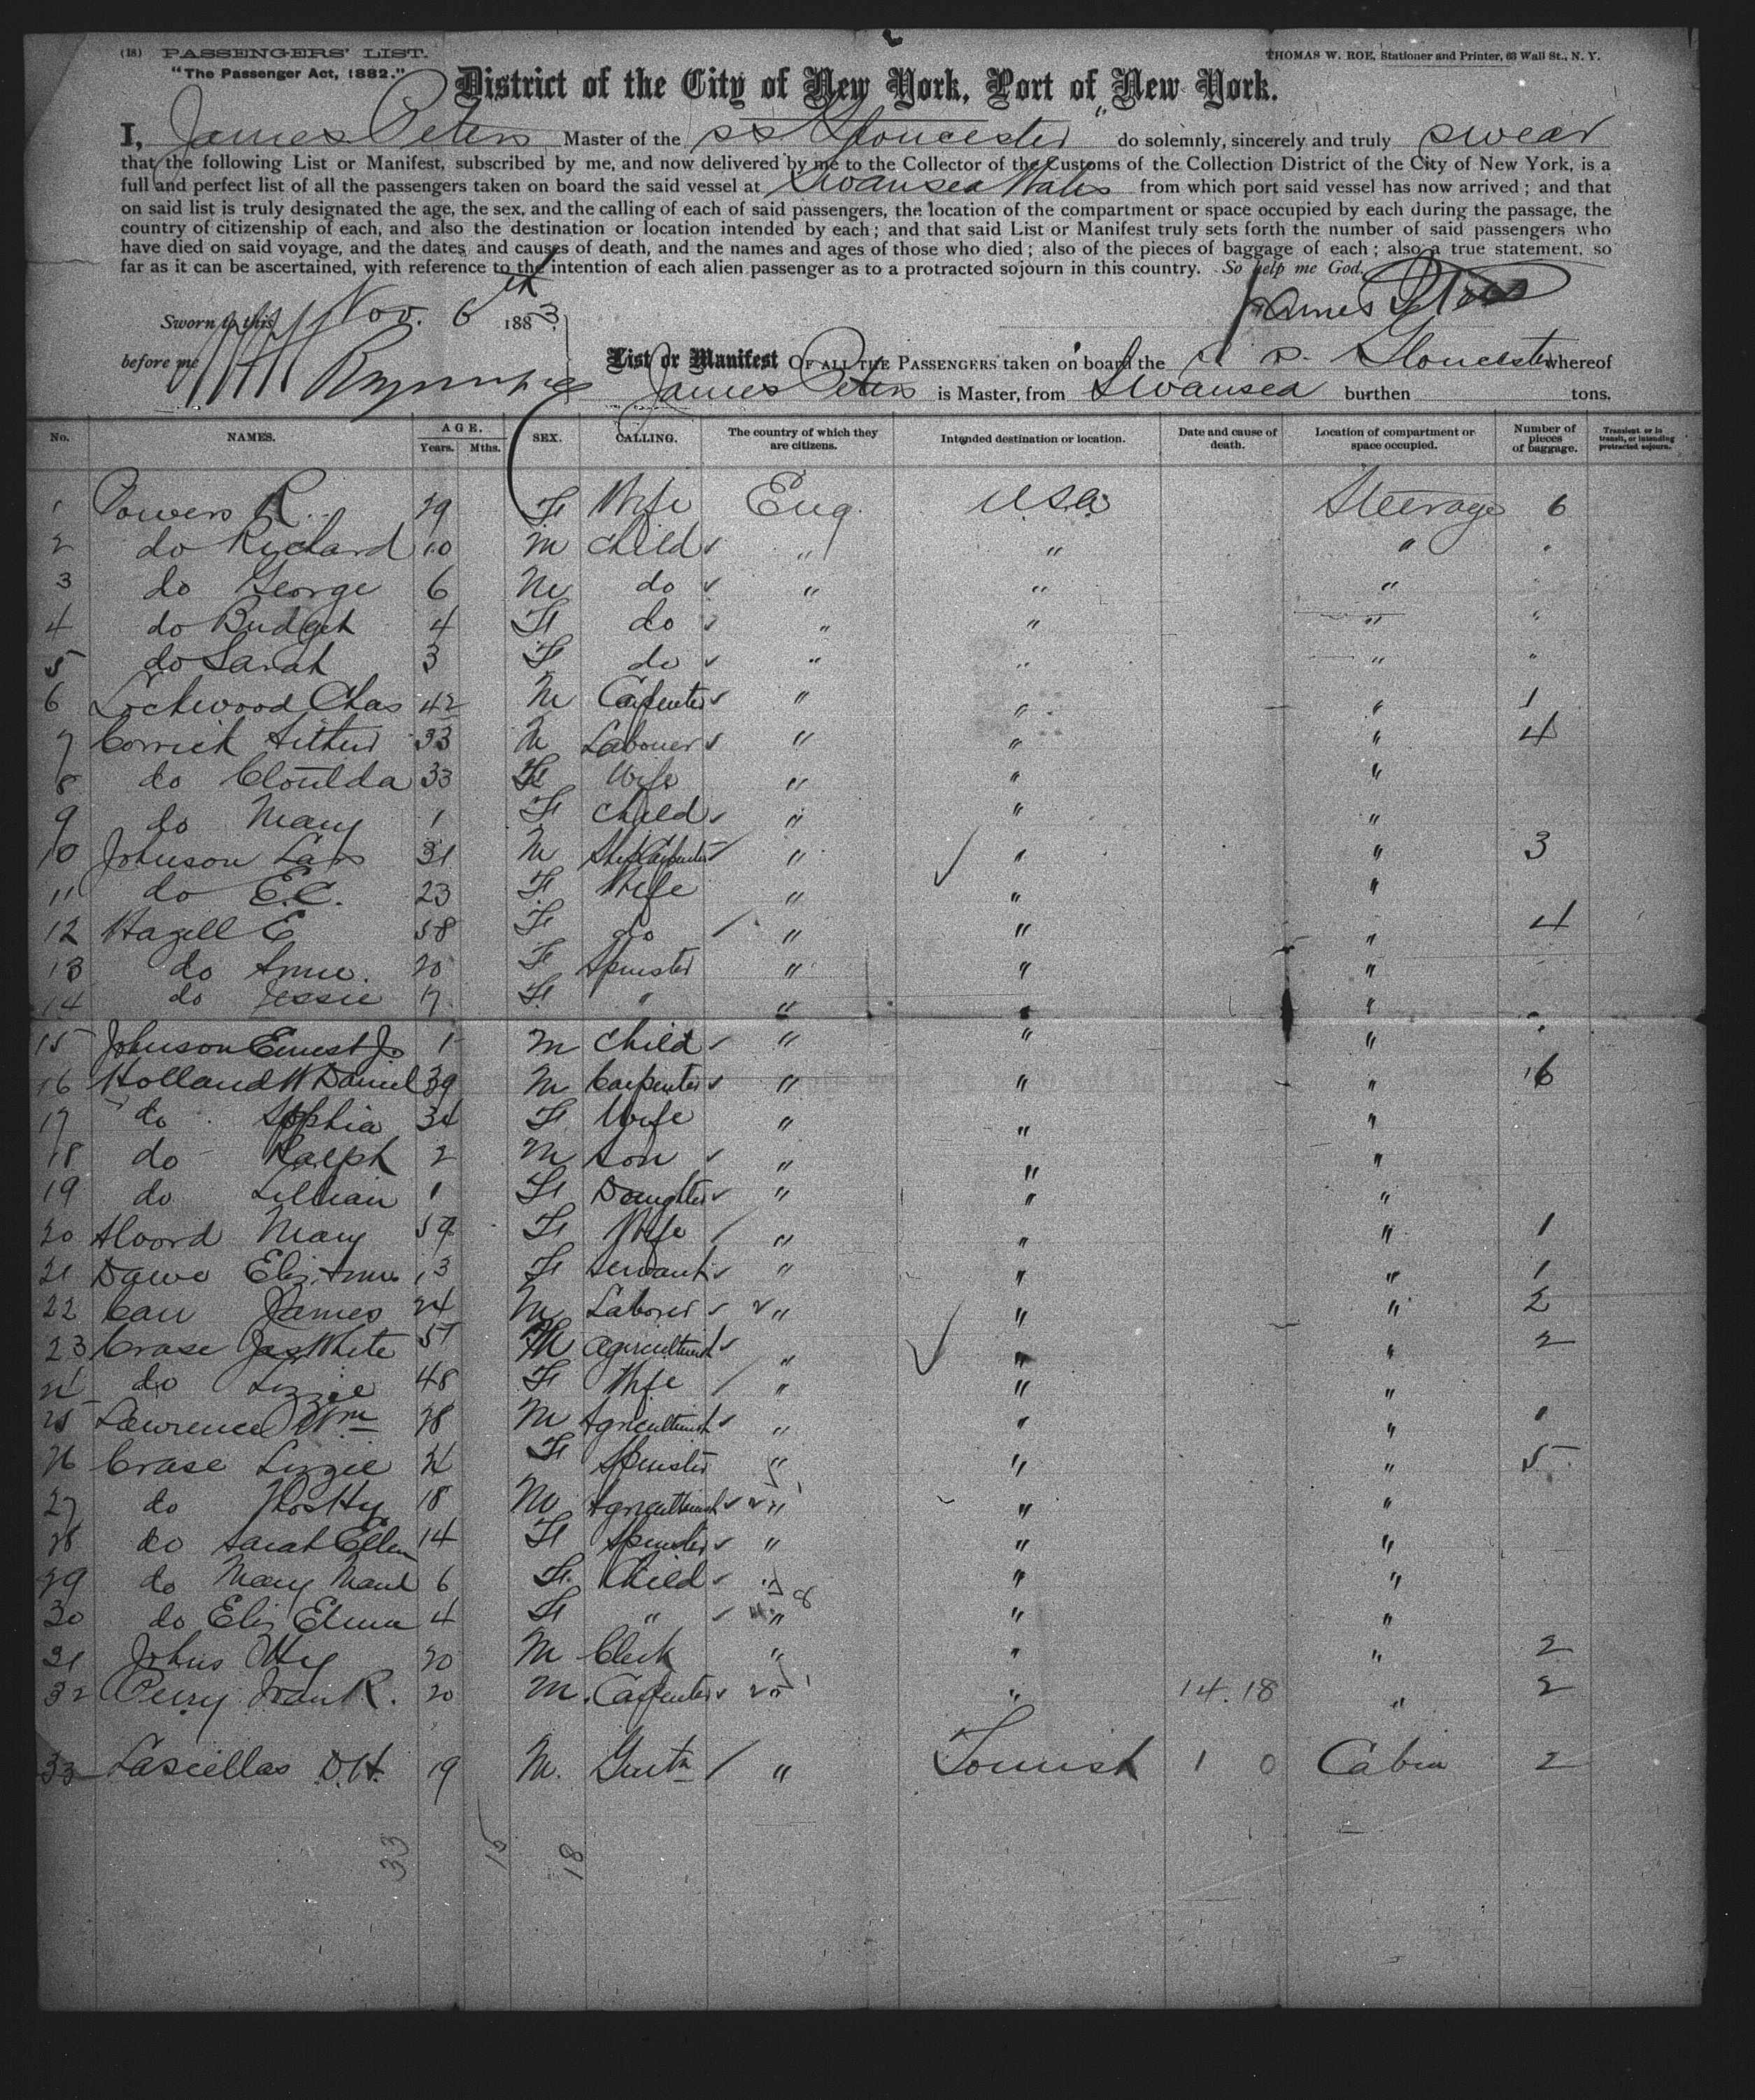 (18) PASSENGERS' LIST. THOMAS W. ROE, Stationer and Printer, 63 Wall St., N. Y.
"The Passenger Act, 1882."
District of the City of New York, Port of New York.
I, James Peters Master of the SS Gloucester do solemnly, sincerely and truly swear
that the following List or Manifest, subscribed by me, and now delivered by me to the Collector of the Customs of the Collection District of the City of New York, is a
full and perfect list of all the passengers taken on board the said vessel at Swansea Wales from which port said vessel has now arrived; and that
on said list is truly designated the age, the sex, and the calling of each of said passengers, the location of the compartment or space occupied by each during the passage, the
country of citizenship of each, and also the destination or location intended by each; and that said List or Manifest truly sets forth the number of said passengers who
have died on said voyage, and the dates and causes of death, and the names and ages of those who died; also of the pieces of baggage of each; also a true statement, so
far as it can be ascertained, with reference to the intention of each alien passenger as to a protracted sojourn in this country. So help me God.
James Peters
Sworn to this Nov. 6th 1883
before me
List or Manifest OF ALL THE PASSENGERS taken on board the S S. Gloucester whereof
James Peters is Master, from Swansea burthen tons.
No. NAMES. AGE. Years. Mths. SEX. CALLING. The country of which they are citizens. Intended destination or location. Date and cause of death. Location of compartment or space occupied. Number of pieces of baggage. Transient or in transit, or intending protracted sojourn.
1 Powers R. 29 F Wife Eng. USA Steerage 6
2 do Richard 10 M Child " " " "
3 do George 6 M do " " "
4 do Bridget 4 F do " " " "
5 do Sarah 3 F do " " " "
6 Lockwood Chas 42 M Carpenter " " " 1
7 Corrick Arthur 33 M Labourer " " " 4
8 do 33 F Wife " " "
9 do Mary 1 F Child " " "
10 Johnson Lars 31 M Ship Carpenter " " " 3
11 do E.C. 23 F. Wife " " "
12 Hazell E 58 F do " " " 4
13 do Annie. 20 F Spinster " " "
14 do Jessie 17 F. " " " " "
15 Johnson Ernest J. 1 M Child " " " "
16 Holland W Daniel 39 M Carpenter " " " 6
17 do Sophia 34 F Wife " " "
18 do Ralph 2 M Son " " "
19 do Lillian 1 F Daughter " " "
20 Alvord Mary 59 F Wife " " " 1
21 Dawe Eliz. Annie 13 F Servant " " " 1
22 Carr James 24 M Laborer " " " 2
23 Crase Jas White 51 M Agriculturist " " " 2
24 do Lizzie 48 F Wife " " "
25 Lawrence Wm 28 M Agriculturist " " " 1
26 Crase Lizzie 21 F Spinster " " " 5
27 do Thos Hy 18 M Agriculturist " " "
28 do Sarah Ellen 14 F Spinster " " "
29 do Mary Maud 6 F. Child " " "
30 do Eliz Elma 4 F " " " "
31 Johns Hy 20 M Clerk " " " 2
32 Perry R. 20 M. Carpenter " " 14.18 " 2
33 Lascellas D.H. 19 M. Gent " Tourist 1 0 Cabin 2
33 15 18